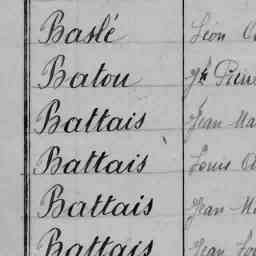 Baslé Léon
Batou Jh Pierre
Battais Jean Ma
Battais Louis
Battais Jean M
Battais Jean Lo